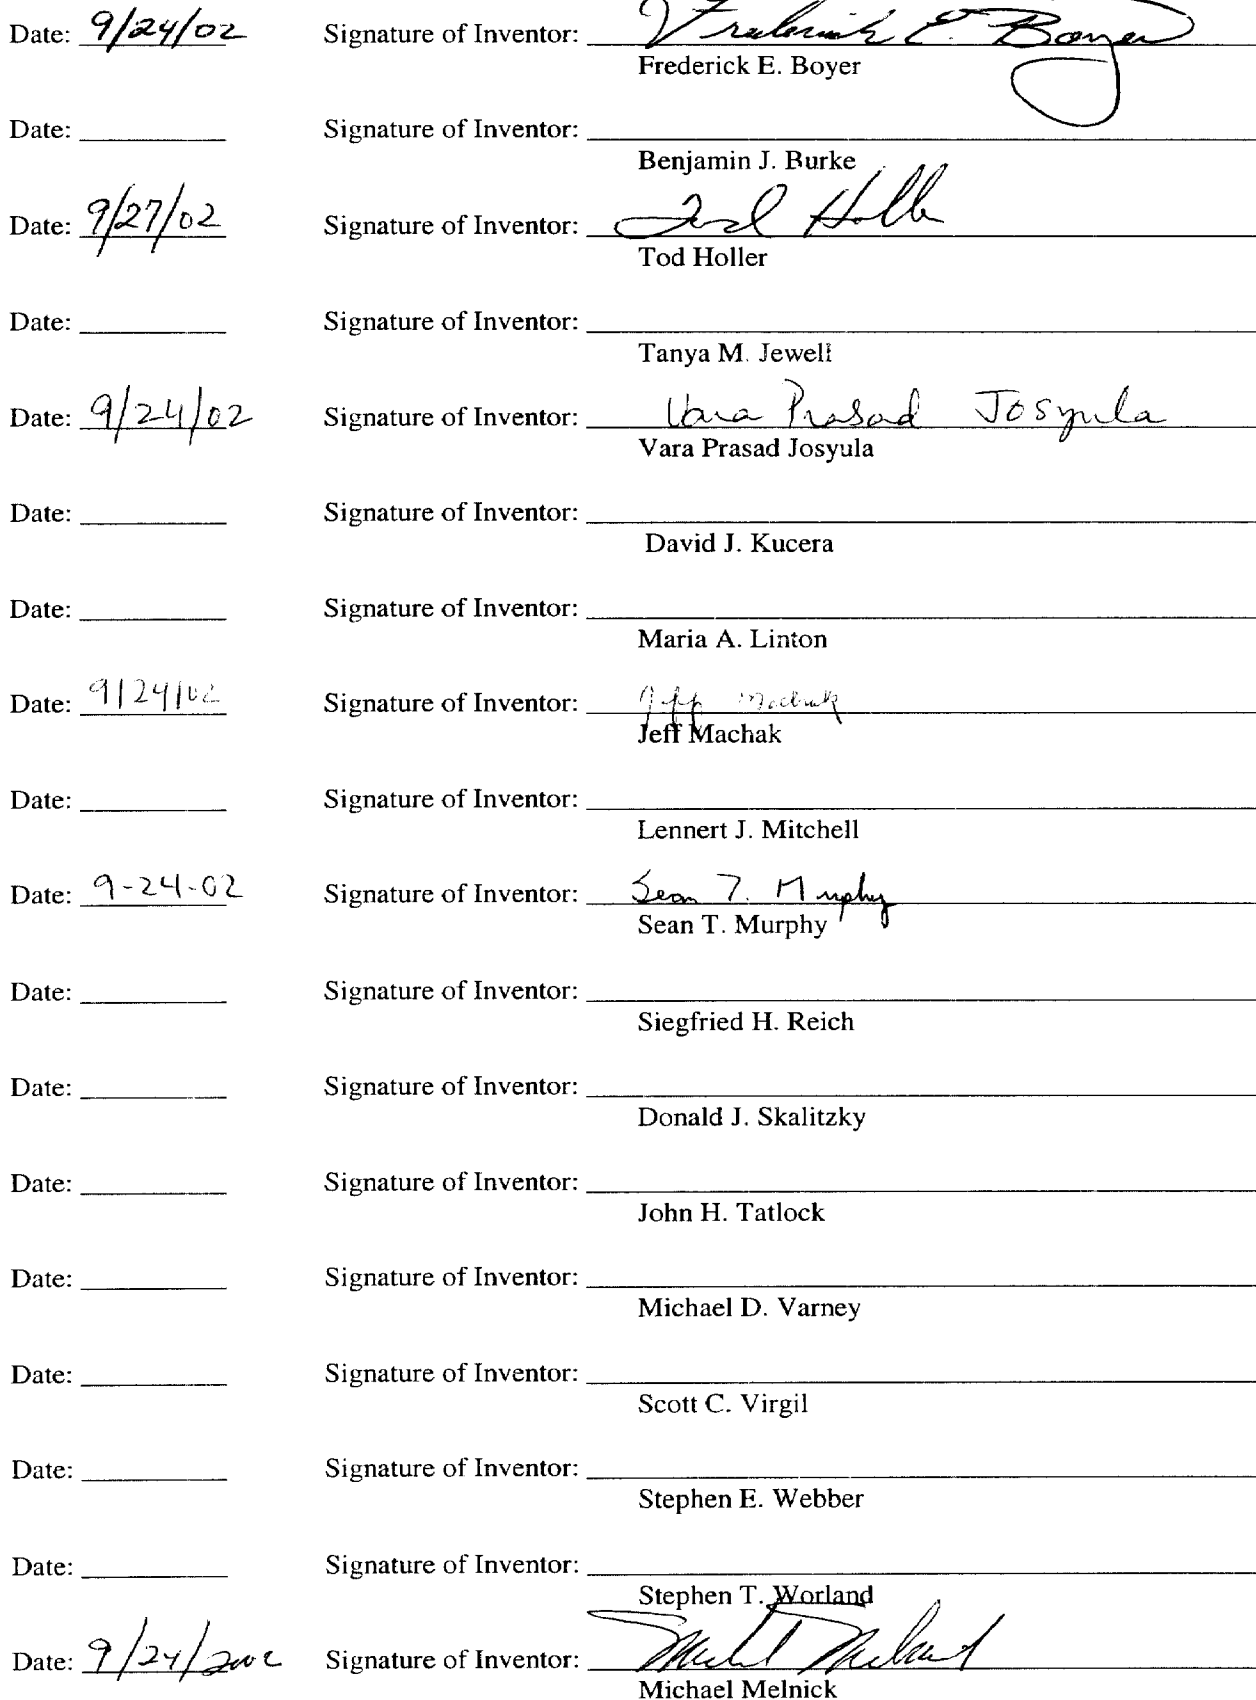 Date: 9/24/02 Signature of Inventor: Frederick E. Boyer
Frederick E. Boyer
Date: Signature of Inventor:
Benjamin J. Burke
Date: 9/27/02 Signature of Inventor: Tod Holler
Tod Holler
Date: Signature of Inventor:
Tanya M. Jewell
Date: 9/24/02 Signature of Inventor: Vara Prasad Josyula
Vara Prasad Josyula
Date: Signature of Inventor:
David J. Kucera
Date: Signature of Inventor:
Maria A. Linton
Date: 9/24/02 Signature of Inventor: Jeff Machak
Jeff Machak
Date: Signature of Inventor:
Lennert J. Mitchell
Date: 9-24-02 Signature of Inventor: Sean T. Murphy
Sean T. Murphy
Date: Signature of Inventor:
Siegfried H. Reich
Date: Signature of Inventor:
Donald J. Skalitzky
Date: Signature of Inventor:
John H. Tatlock
Date: Signature of Inventor:
Michael D. Varney
Date: Signature of Inventor:
Scott C. Virgil
Date: Signature of Inventor:
Stephen E. Webber
Date: Signature of Inventor:
Stephen T. Worland
Date: 9/24/2002 Signature of Inventor: Michael Melnick
Michael Melnick